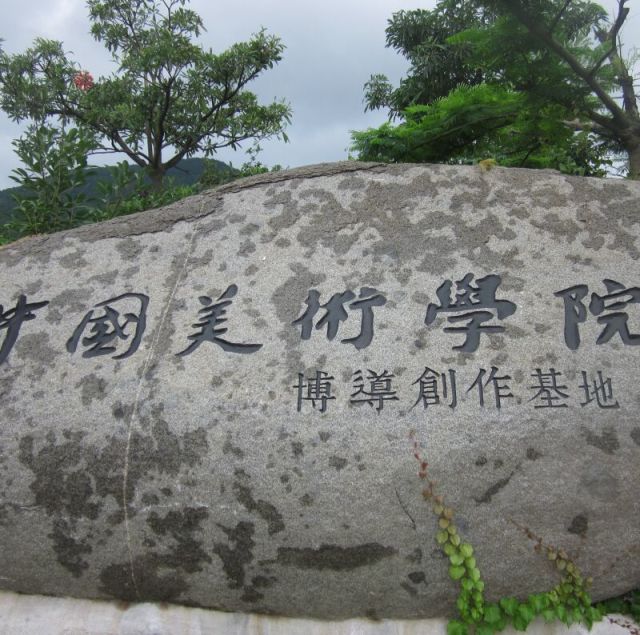 中國美術學院
博導創作基地